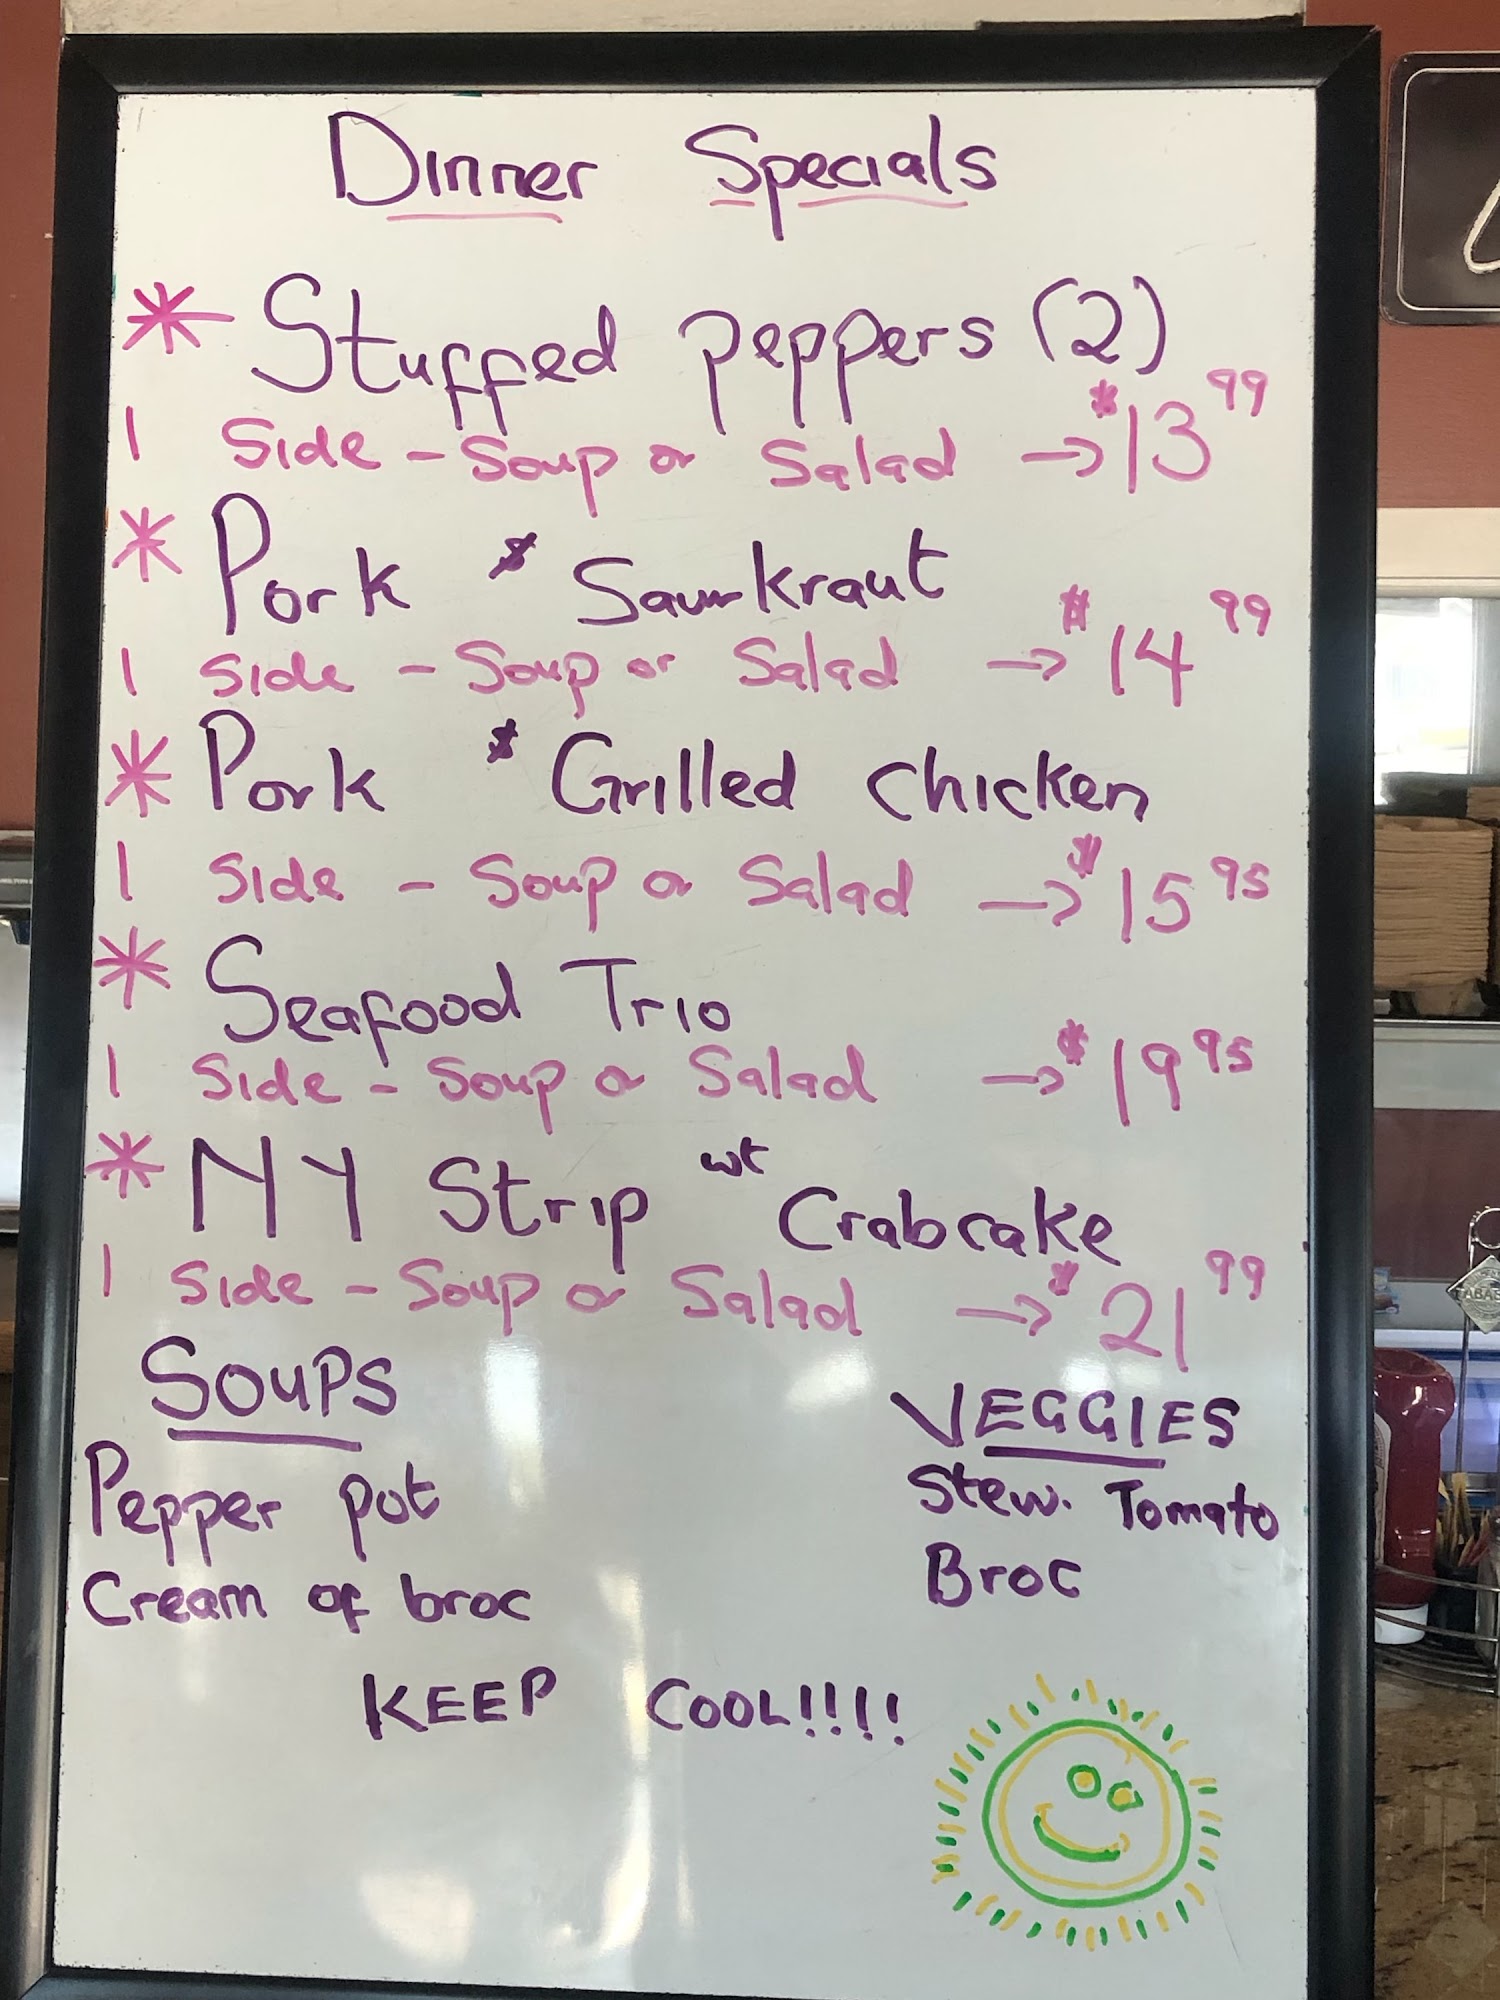 Dinner Specials
* Stuffed peppers (2)
1 Side - Soup or Salad → $13.99
* Pork & Saurkraut
1 Side - Soup or Salad → $14.99
* Pork & Grilled chicken
1 Side - Soup or Salad → $15.95
* Seafood Trio
1 Side - Soup or Salad → $19.95
* NY Strip wt Crabcake
1 Side - Soup or Salad → $21.99
SOUPS
Pepper pot
Cream of broc
VEGGIES
Stew. Tomato
Broc
KEEP COOL!!!!